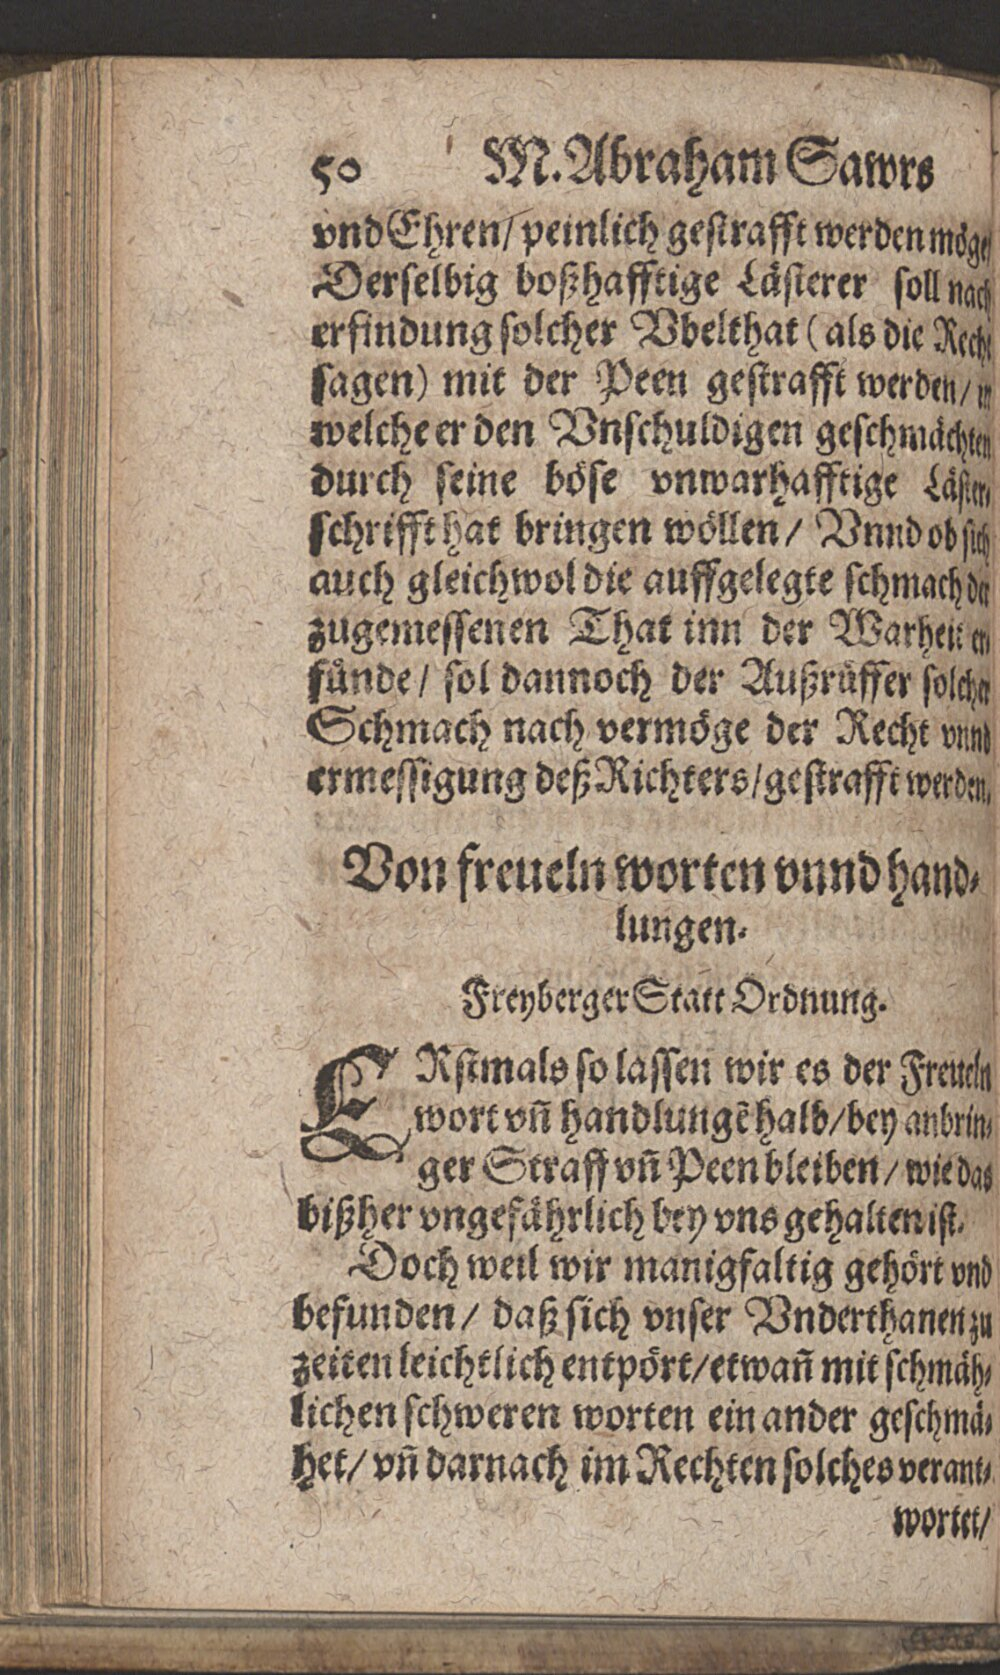 50 M. Abraham Sawrs
vnd Ehren/ peinlich gestrafft werden möge/
Derselbig boßhafftige Lästerer soll nach
erfindung solcher Vbelthat (als die Recht
sagen) mit der Peen gestrafft werden/ in
welche er den Vnschuldigen geschmächten
durch seine böse vnwarhafftige Läster-
schrifft hat bringen wöllen/ Vnnd ob sich
auch gleichwol die auffgelegte schmach der
zugemessenen That inn der Warheit er-
fünde/ sol dannoch der Außrüffer solcher
Schmach nach vermöge der Recht vnnd
ermessigung deß Richters/ gestrafft werden.
Von freueln worten vnnd hand-
lungen.
Freyberger Statt Ordnung.
ERstmals so lassen wir es der Freueln
wort vñ handlungẽ halb/ bey anbrin-
ger Straff vñ Peen bleiben/ wie das
bißher vngefährlich bey vns gehalten ist.
Doch weil wir manigfaltig gehört vnd
befunden/ daß sich vnser Vnderthanen zu
zeiten leichtlich entpört/ etwañ mit schmäh-
lichen schweren worten ein ander geschmä-
het/ vñ darnach im Rechten solches verant-
wortet/